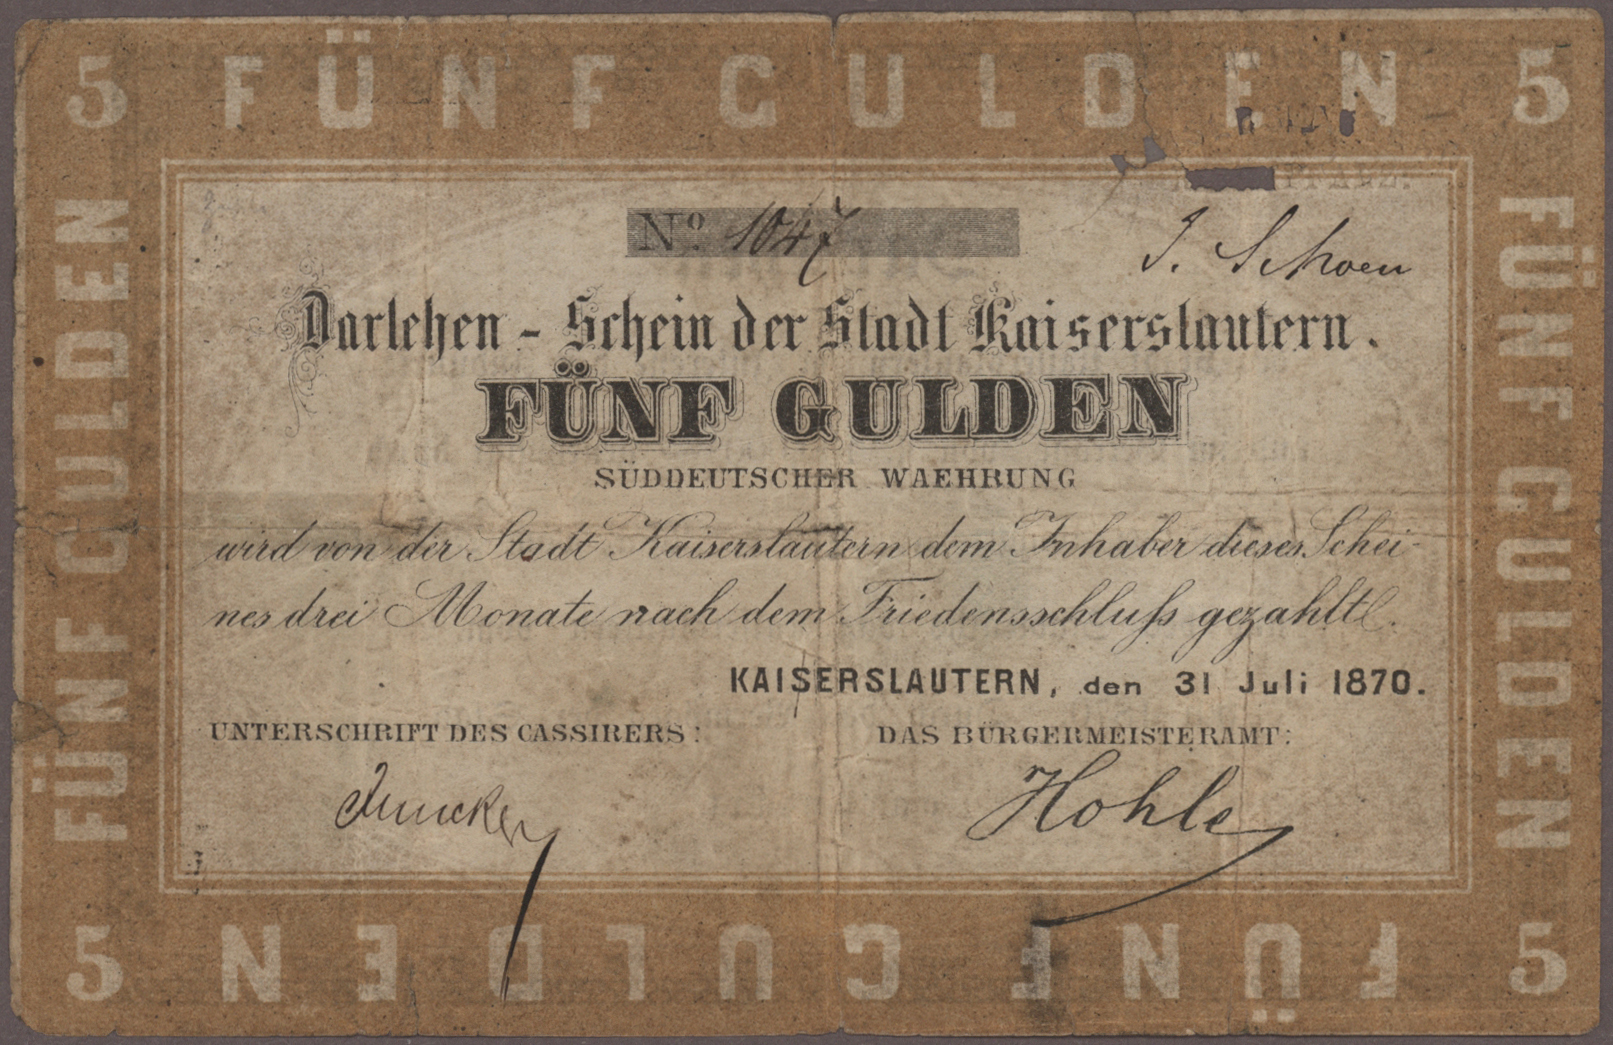 5 FÜNF GULDEN 5
FÜNF GULDEN
FÜNF GULDEN
No. 1047
J. Schoen
Darlehen - Schein der Stadt Kaiserslautern.
FÜNF GULDEN
SÜDDEUTSCHER WAEHRUNG
wird von der Stadt Kaiserslautern dem Inhaber dieses Schei-
nes drei Monate nach dem Friedensschluß gezahlt.
KAISERSLAUTERN, den 31 Juli 1870.
UNTERSCHRIFT DES CASSIRERS:
DAS BÜRGERMEISTERAMT:
Hohle
5 FÜNF GULDEN 5